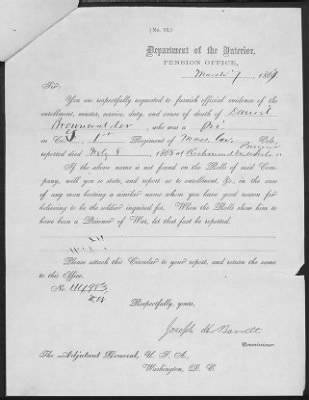 [No. 22.]
Department of the Interior,
PENSION OFFICE,
March 7, 186
Sir:
You are respectfully requested to furnish official evidence of the
enrollment, muster, service, duty, and cause of death of Daniel
who was a Pri
in Co. 1st Regiment of Mass. Cav. Vols.,
reported died 8, 186 at Richmond
If the above name is not found on the Rolls of said Company,
will you so state, and report as to enrollment, &c., in the case
of any men having a similar name whom you have good reason for
believing to be the soldier inquired for. When the Rolls show him to
have been a Prisoner of War, let that fact be reported.
Please attach this Circular to your report, and return the same
to this Office.
No.
Respectfully, yours,
Joseph H Barrett
Commissioner.
The Adjutant General, U. S. A.,
Washington, D. C.